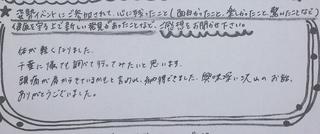 姿勢イベントにご参加されて、心に残ったこと(面白かったこと、楽しかったこと、驚いたことなど)
健康を守る上で新しい発見があったことなど、ご感想をお聞かせ下さい。
体が軽くなりました。
千葉に帰っても調べて行ってみたいと思います。
頭痛が肩からきているかもと言われ、納得できました。興味深い沢山のお話、
ありがとうございました。